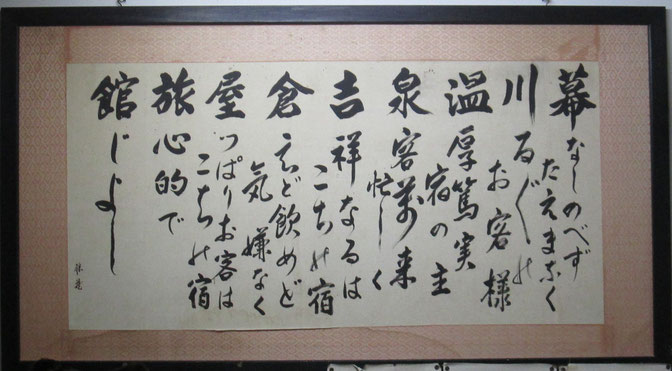 幕なしのべず
たえまなく
川る〲の
お客様
温厚篤実
宿の主
泉客萬来
忙しく
吉祥なるは
こちの宿
倉えど飲めど
気嫌なく
屋っぱりお客は
こちの宿
旅心的で
館じよし